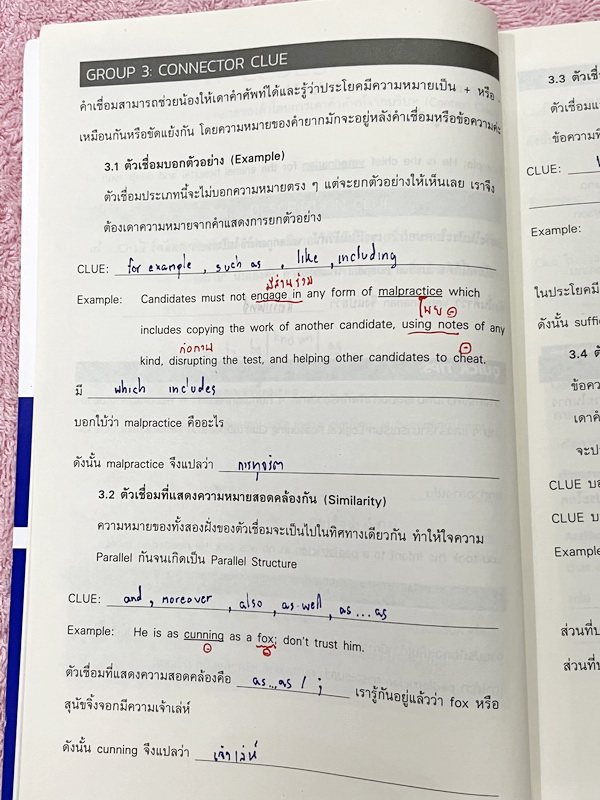 GROUP 3: CONNECTOR CLUE
คำเชื่อมสามารถช่วยน้องให้เดาคำศัพท์ได้และรู้ว่าประโยคมีความหมายเป็น + หรือ
เหมือนกันหรือขัดแย้งกัน โดยความหมายของคำยากมักจะอยู่หลังคำเชื่อมหรือข้อความ
3.1 ตัวเชื่อมบอกตัวอย่าง (Example)
ตัวเชื่อมประเภทนี้จะไม่บอกความหมายตรง ๆ แต่จะยกตัวอย่างให้เห็นเลย เราจึง
ต้องเดาความหมายจากคำแสดงการยกตัวอย่าง
CLUE: for example , such as , like , including
มีส่วนร่วม
Example: Candidates must not engage in any form of malpractice which
โพย -
includes copying the work of another candidate, using notes of any
ก่อกวน -
kind, disrupting the test, and helping other candidates to cheat.
มี which includes
บอกใบ้ว่า malpractice คืออะไร
ดังนั้น malpractice จึงแปลว่า การทุจริต
3.2 ตัวเชื่อมที่แสดงความหมายสอดคล้องกัน (Similarity)
ความหมายของทั้งสองฝั่งของตัวเชื่อมจะเป็นไปในทิศทางเดียวกัน ทำให้ใจความ
Parallel กันจนเกิดเป็น Parallel Structure
CLUE: and, moreover , also , as well , as...as
Example: He is as cunning as a fox; don't trust him.
- -
ตัวเชื่อมที่แสดงความสอดคล้องคือ as...as / ; เรารู้กันอยู่แล้วว่า fox หรือ
สุนัขจิ้งจอกมีความเจ้าเล่ห์
ดังนั้น cunning จึงแปลว่า เจ้าเล่ห์
3.3 ตัวเชื่
ตัวเชื่อม
ข้อความที่
CLUE:
Example:
ในประโยคมี
ดังนั้น suffic
3.4
ข้อคว
เดาค
จะป
CLUE บอ
CLUE บ
Example
ส่วนที่บ
ส่วนที่บ